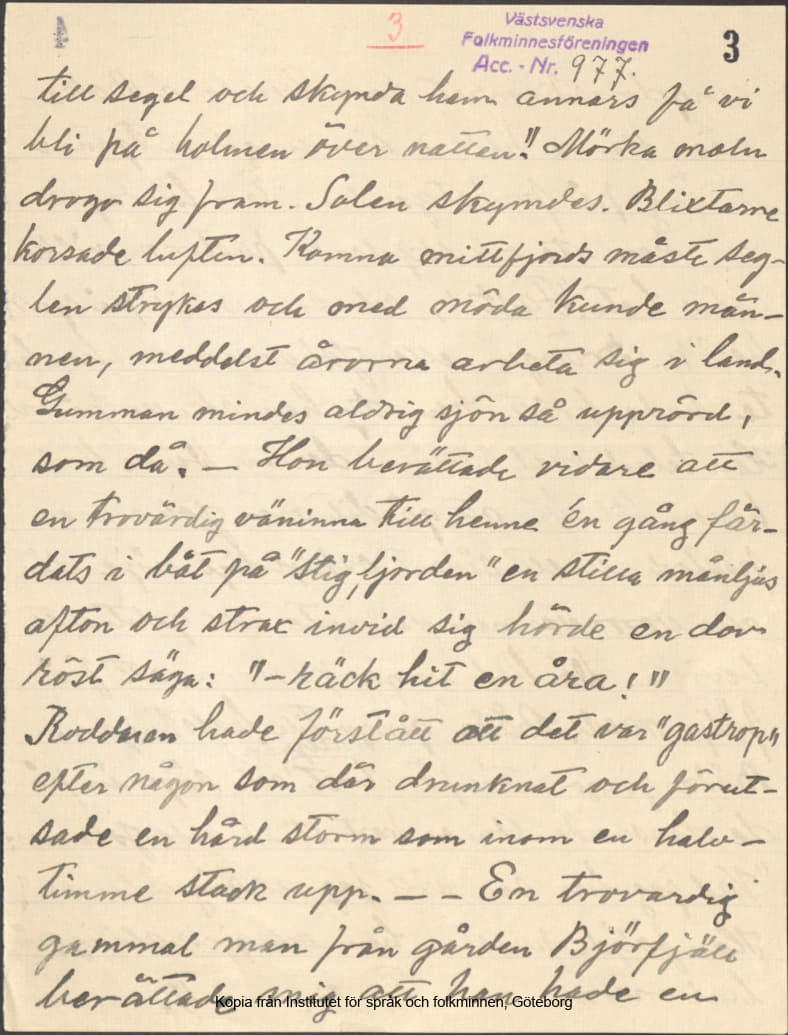 3
Västsvenska
Folkminnesföreningen
Acc. - Nr. 977.
3
till segel och skynda hem annars få vi
bli på holmen över natten!" Mörka moln
drogo sig fram. Solen skymdes. Blixtarne
korsade luften. Komna mittfjords måste seg-
len strykas och med möda kunde män-
nen, meddelst årorna arbeta sig i land.
Gumman mindes aldrig sjön så upprörd,
som då. — Hon berättade vidare att
en trovärdig väninna till henne én gång fär-
dats i båt på "Stigfjorden" en stilla månljus
afton och strax invid sig hörde en dov
röst säga: "- räck hit en åra!"
Roddaren hade förstått att det var "gastrop"
efter någon som där drunknat och förut-
sade en hård storm som inom en halv-
timme stack upp. — — En trovardig
gammal man från gården Björfjäll
berättade mig att han hade en
Kopia från Institutet för språk och folkminnen, Göteborg